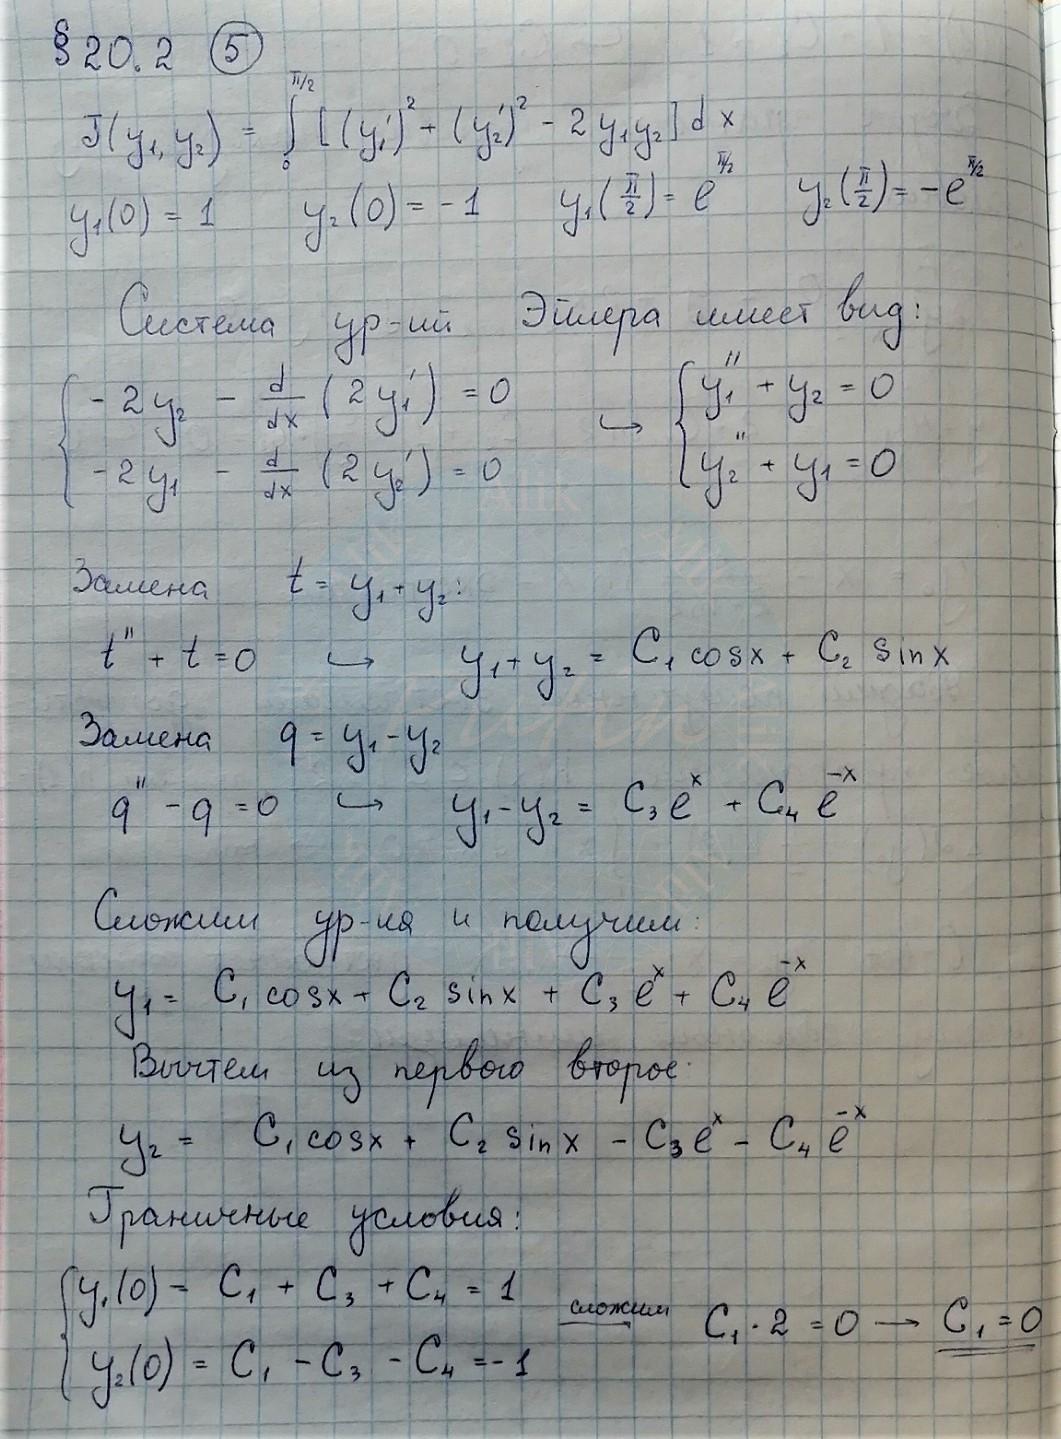 § 20.2 (5)
J(y₁, y₂) = ∫₀^{π/2} [(y₁')² + (y₂')² - 2y₁y₂] dx
y₁(0) = 1 y₂(0) = -1 y₁(π/2) = e^{π/2} y₂(π/2) = -e^{π/2}
Система ур-ий Эйлера имеет вид:
{ -2y₂ - d/dx (2y₁') = 0 ↪ { y₁'' + y₂ = 0
-2y₁ - d/dx (2y₂') = 0 y₂'' + y₁ = 0
Замена t = y₁ + y₂:
t'' + t = 0 ↪ y₁ + y₂ = C₁ cosx + C₂ sinx
Замена q = y₁ - y₂
q'' - q = 0 ↪ y₁ - y₂ = C₃ e^x + C₄ e^{-x}
Сложим ур-ия и получим:
y₁ = C₁ cosx + C₂ sinx + C₃ e^x + C₄ e^{-x}
Вычтем из первого второе:
y₂ = C₁ cosx + C₂ sinx - C₃ e^x - C₄ e^{-x}
Граничные условия:
{ y₁(0) = C₁ + C₃ + C₄ = 1
y₂(0) = C₁ - C₃ - C₄ = -1
сложим → C₁ · 2 = 0 → C₁ = 0